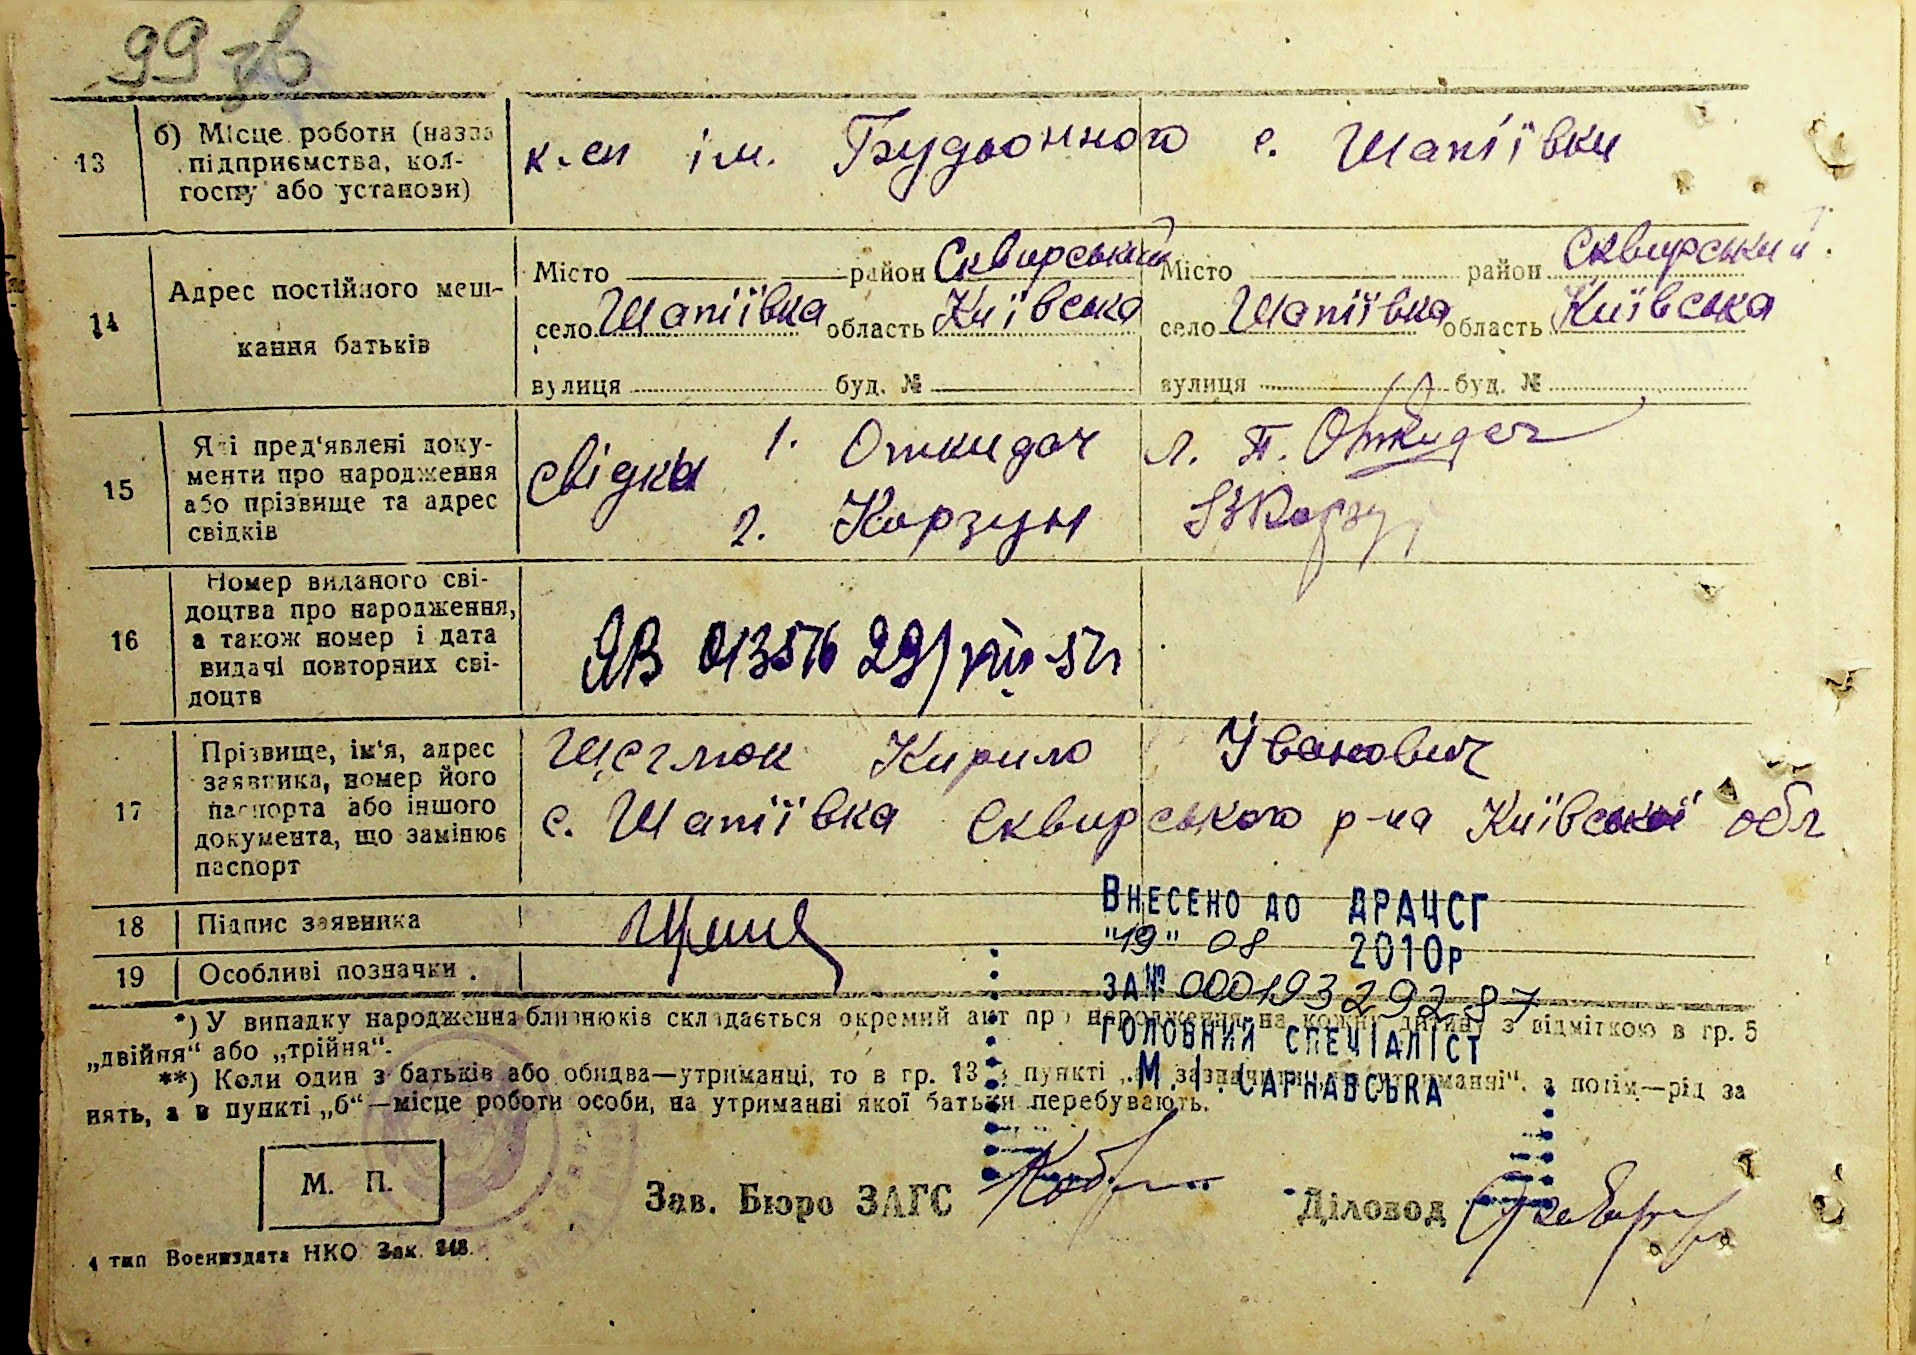 99 зв
13
б) Місце роботи (назва
підприємства, кол-
госпу або установи)
к-сп ім. Будьонного с. Шапіївки
14
Адрес постійного меш-
кання батьків
Місто район Сквирський
село Шапіївка область Київська
вулиця буд. №
Місто район Сквирський
село Шапіївка область Київська
вулиця буд. №
15
Які пред'явлені доку-
менти про народження
або прізвище та адрес
свідків
свідки 1. Откидач Л. П. Откидач
2. Корзун
16
Номер виданого сві-
доцтва про народження,
а також номер і дата
видачі повторних сві-
доцтв
ЯВ 013576 29/VIII-57
17
Прізвище, ім'я, адрес
заявника, номер його
паспорта або іншого
документа, що замінює
паспорт
Щеглюк Кирило Іванович
с. Шапіївка Сквирського р-на Київської обл
18
Підпис заявника
19
Особливі позначки.
Внесено до ДРАЦСГ
"19" 08 2010р
за № 00019329287
Головний спеціаліст
М.І. Сарнавська
*) У випадку народження близнюків складається окремий акт про народження на кожну дитину з відміткою в гр. 5
„двійня“ або „трійня“.
**) Коли один з батьків або обидва—утриманці, то в гр. 13 в пункті утриманні“, а потім—рід за
нять, а в пункті „б“—місце роботи особи, на утриманні якої батьки перебувають.
М. П.
Зав. Бюро ЗАГС
Діловод
4 тип Воениздата НКО Зак. 248.